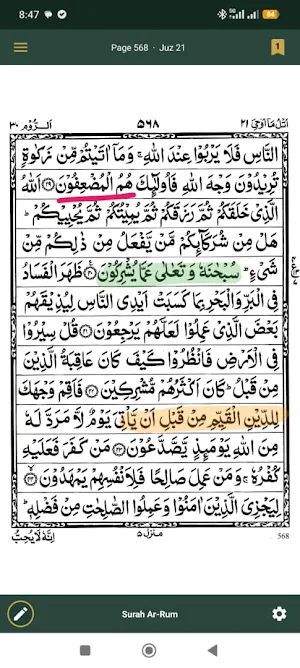 8:47
5G
54
Page 568 · Juz 21
1
اَلرُّوْم ٣٠
٥٦٨
اُتْلُ مَآ اُوْحِيَ ٢١
النَّاسِ فَلَا يَرْبُوْا عِنْدَ اللّٰهِ ۚ وَمَآ اٰتَيْتُمْ مِّنْ زَكٰوةٍ
تُرِيْدُوْنَ وَجْهَ اللّٰهِ فَاُولٰٓئِكَ هُمُ الْمُضْعِفُوْنَ ﴿٣٩﴾ اَللّٰهُ
الَّذِيْ خَلَقَكُمْ ثُمَّ رَزَقَكُمْ ثُمَّ يُمِيْتُكُمْ ثُمَّ يُحْيِيْكُمْ ؕ
هَلْ مِنْ شُرَكَآئِكُمْ مَّنْ يَّفْعَلُ مِنْ ذٰلِكُمْ مِّنْ
شَيْءٍ ؕ سُبْحٰنَهٗ وَتَعٰلٰى عَمَّا يُشْرِكُوْنَ ﴿٤٠﴾ ظَهَرَ الْفَسَادُ
فِي الْبَرِّ وَالْبَحْرِ بِمَا كَسَبَتْ اَيْدِي النَّاسِ لِيُذِيْقَهُمْ
بَعْضَ الَّذِيْ عَمِلُوْا لَعَلَّهُمْ يَرْجِعُوْنَ ﴿٤١﴾ قُلْ سِيْرُوْا
فِي الْاَرْضِ فَانْظُرُوْا كَيْفَ كَانَ عَاقِبَةُ الَّذِيْنَ
مِنْ قَبْلُ ؕ كَانَ اَكْثَرُهُمْ مُّشْرِكِيْنَ ﴿٤٢﴾ فَاَقِمْ وَجْهَكَ
لِلدِّيْنِ الْقَيِّمِ مِنْ قَبْلِ اَنْ يَّاْتِيَ يَوْمٌ لَّا مَرَدَّ لَهٗ
مِنَ اللّٰهِ يَوْمَئِذٍ يَّصَّدَّعُوْنَ ﴿٤٣﴾ مَنْ كَفَرَ فَعَلَيْهِ
كُفْرُهٗ ۚ وَمَنْ عَمِلَ صَالِحًا فَلِاَنْفُسِهِمْ يَمْهَدُوْنَ ﴿٤٤﴾
لِيَجْزِيَ الَّذِيْنَ اٰمَنُوْا وَعَمِلُوا الصّٰلِحٰتِ مِنْ فَضْلِهٖ ؕ
اِنَّهٗ لَا يُحِبُّ
منزل ٥
568
Surah Ar-Rum